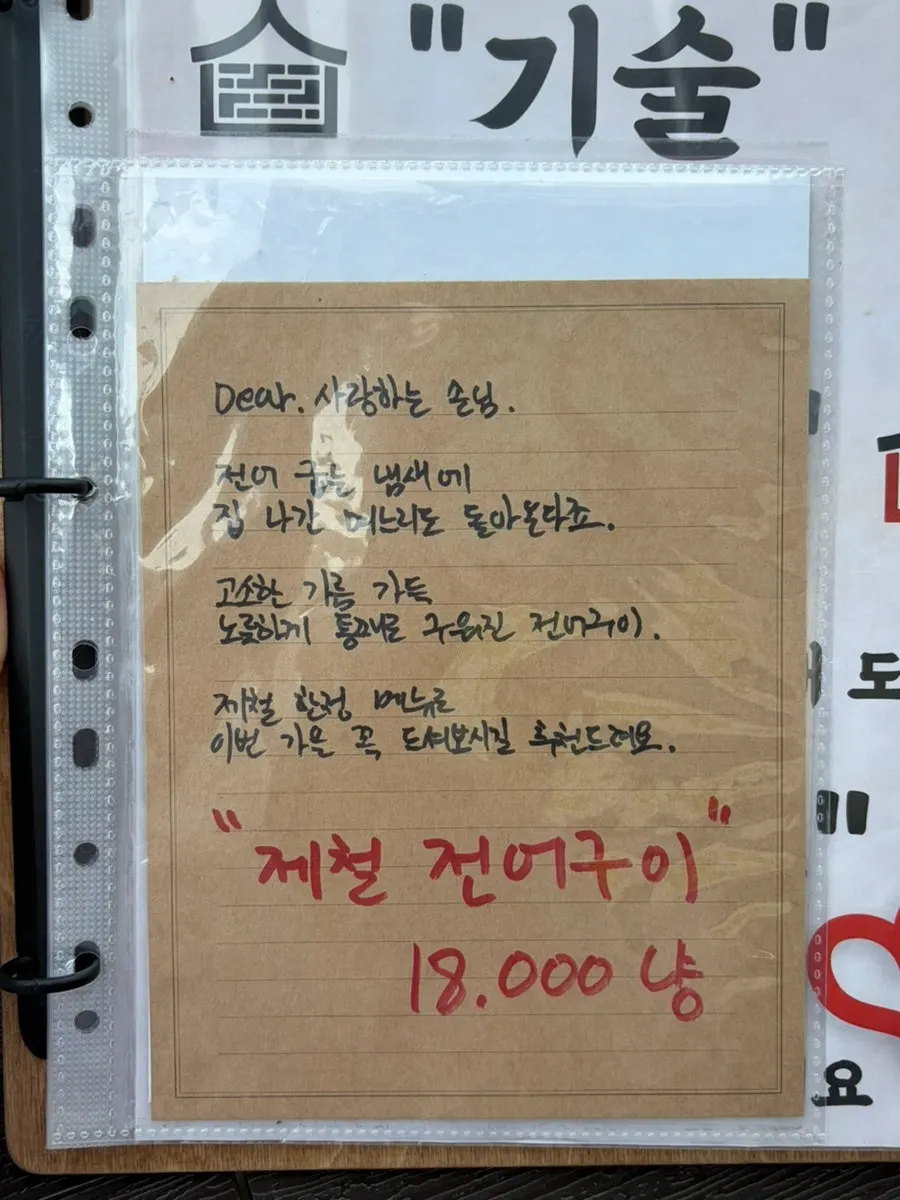 "기술"
Dear. 사랑하는 손님.
전어 굽는 냄새에
집 나간 며느리도 돌아온다죠.
고소한 기름 가득
노릇하게 통째로 구워진 전어구이.
제철 한정 메뉴로
이번 가을 꼭 드셔보시길 추천드려요.
"제철 전어구이"
18.000 냥
도
"
요